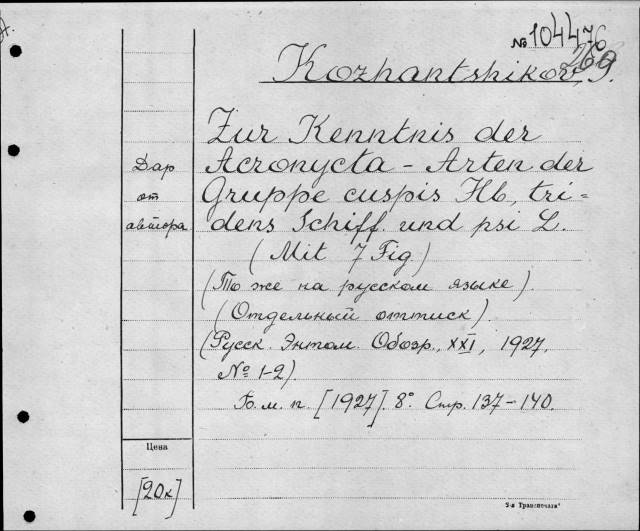 № 104476
Kozhantshikov, J.
Zur Kenntnis der
Дар Acronycta - Arten der
от Gruppe cuspis Hb, tri=
автора dens Schiff. und psi L.
(Mit 7 Fig.)
(То же на русском языке).
(Отдельный оттиск).
(Русск. Энтом. Обозр., XXI, 1927.
№ 1-2).
Б. м. п. [1927]. 8°. Стр. 137-140.
Цена
[20к]
5-я Транспечать